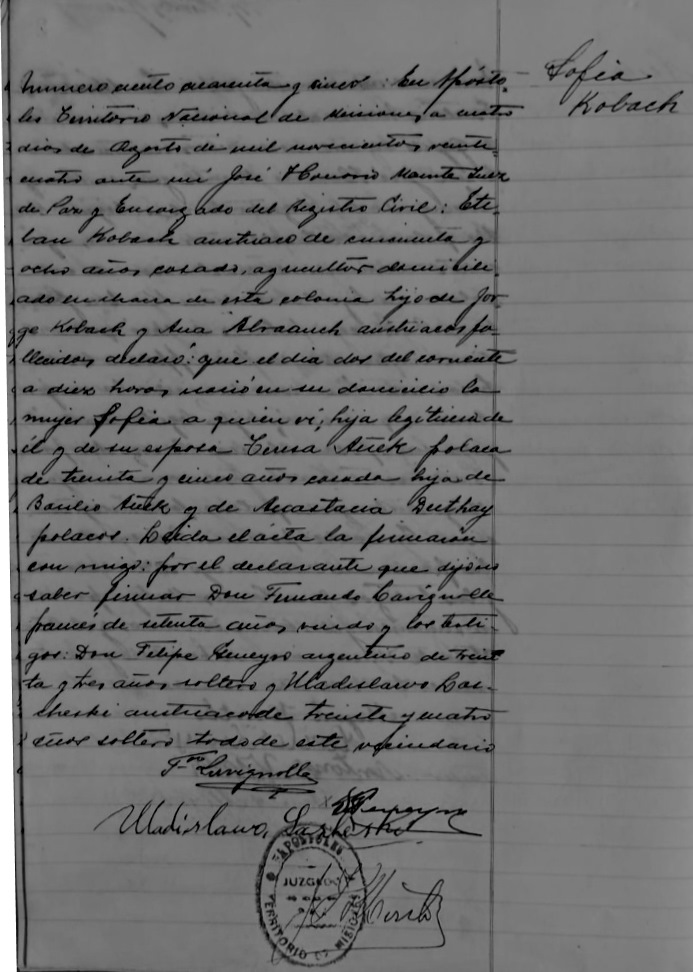 Sofia
Kobach
Numero ciento cuarenta y cinco: En Apósto-
les Territorio Nacional de Misiones, a cuatro
dias de Agosto de mil novecientos veinte-
cuatro ante mi José Honorio Juez
de Paz y Encargado del Registro Civil: Este-
ban Kobach austriaco de cincuenta y
ocho años casado, agricultor domicili-
ado en chacra de esta colonia hijo de Jor-
ge Kobach y Ana austriacos fa-
llecidos declaró: que el dia dos del corriente
a diez horas nació en su domicilio la
mujer Sofia a quien ví; hija legítima de
él y de su esposa Teresa polaca
de treinta y cinco años casada hija de
Basilio y de Anastacia
polacos. Leida el ácta la firmarón
con migo: por el declarante que dijo no
saber firmar Don Fernando Lavignolle
francés de setenta años, viudo y los testi-
gos: Don Felipe argentino de trein
ta y tres años soltero y Uladislawo Las-
cheski austriaco de treinta y cuatro
años soltero todo de este vecindario
F=do Lavignolle
Uladislawo,
APOSTOLES
JUZGADO
TERRITORIO DE MISIONES